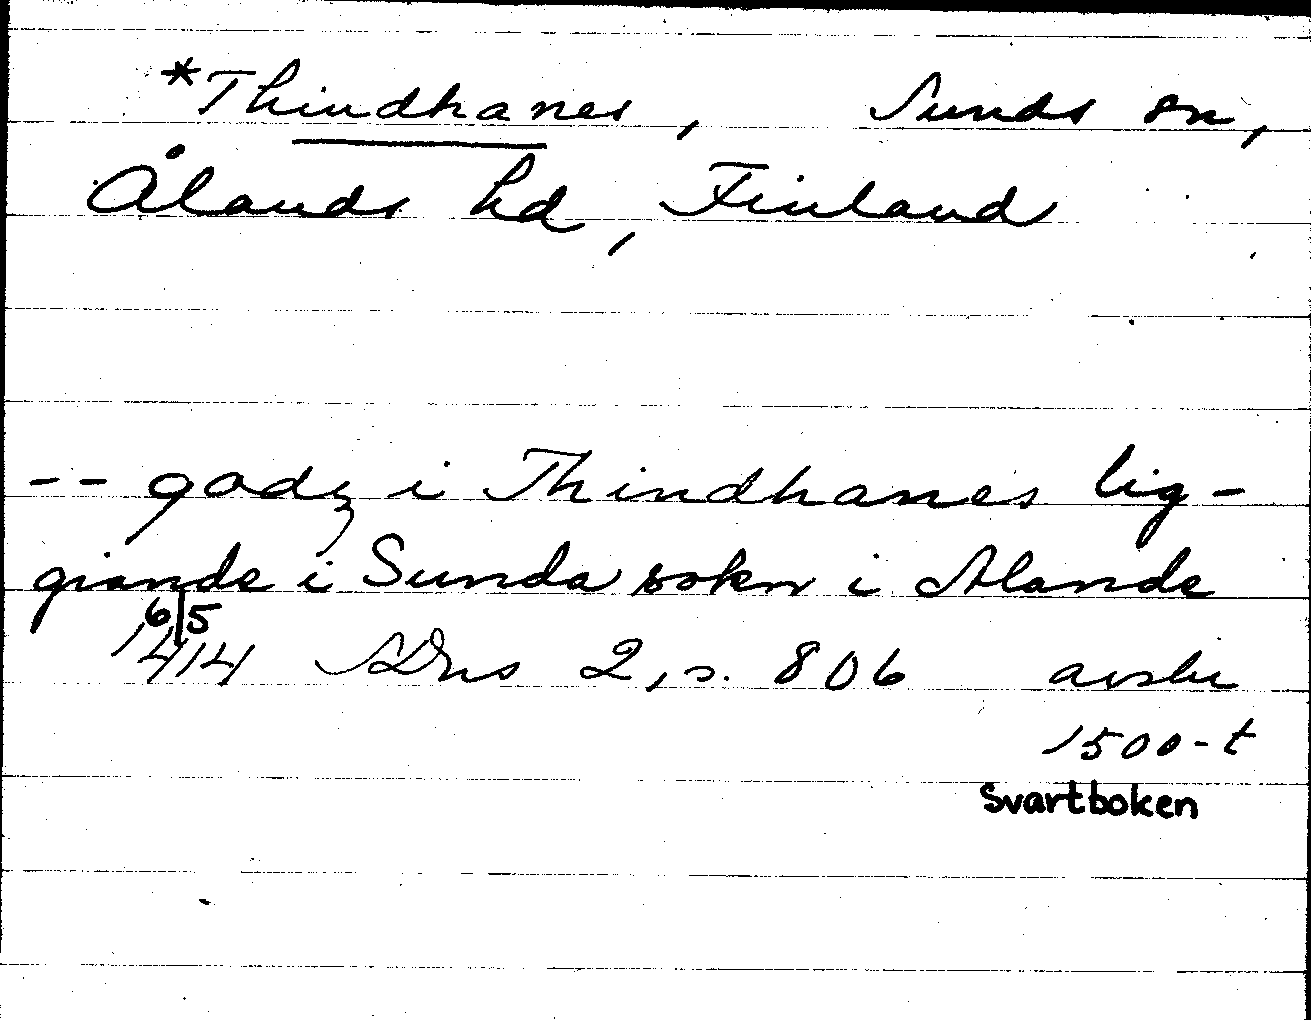 *Thindhanes, Sunds sn,
Ålands hd, Finland
-- godz i Thindhanes lig-
giande i Sunda sokn i Alande
6/5
1414 SDns 2, s. 806 avskr
1500-t
Svartboken